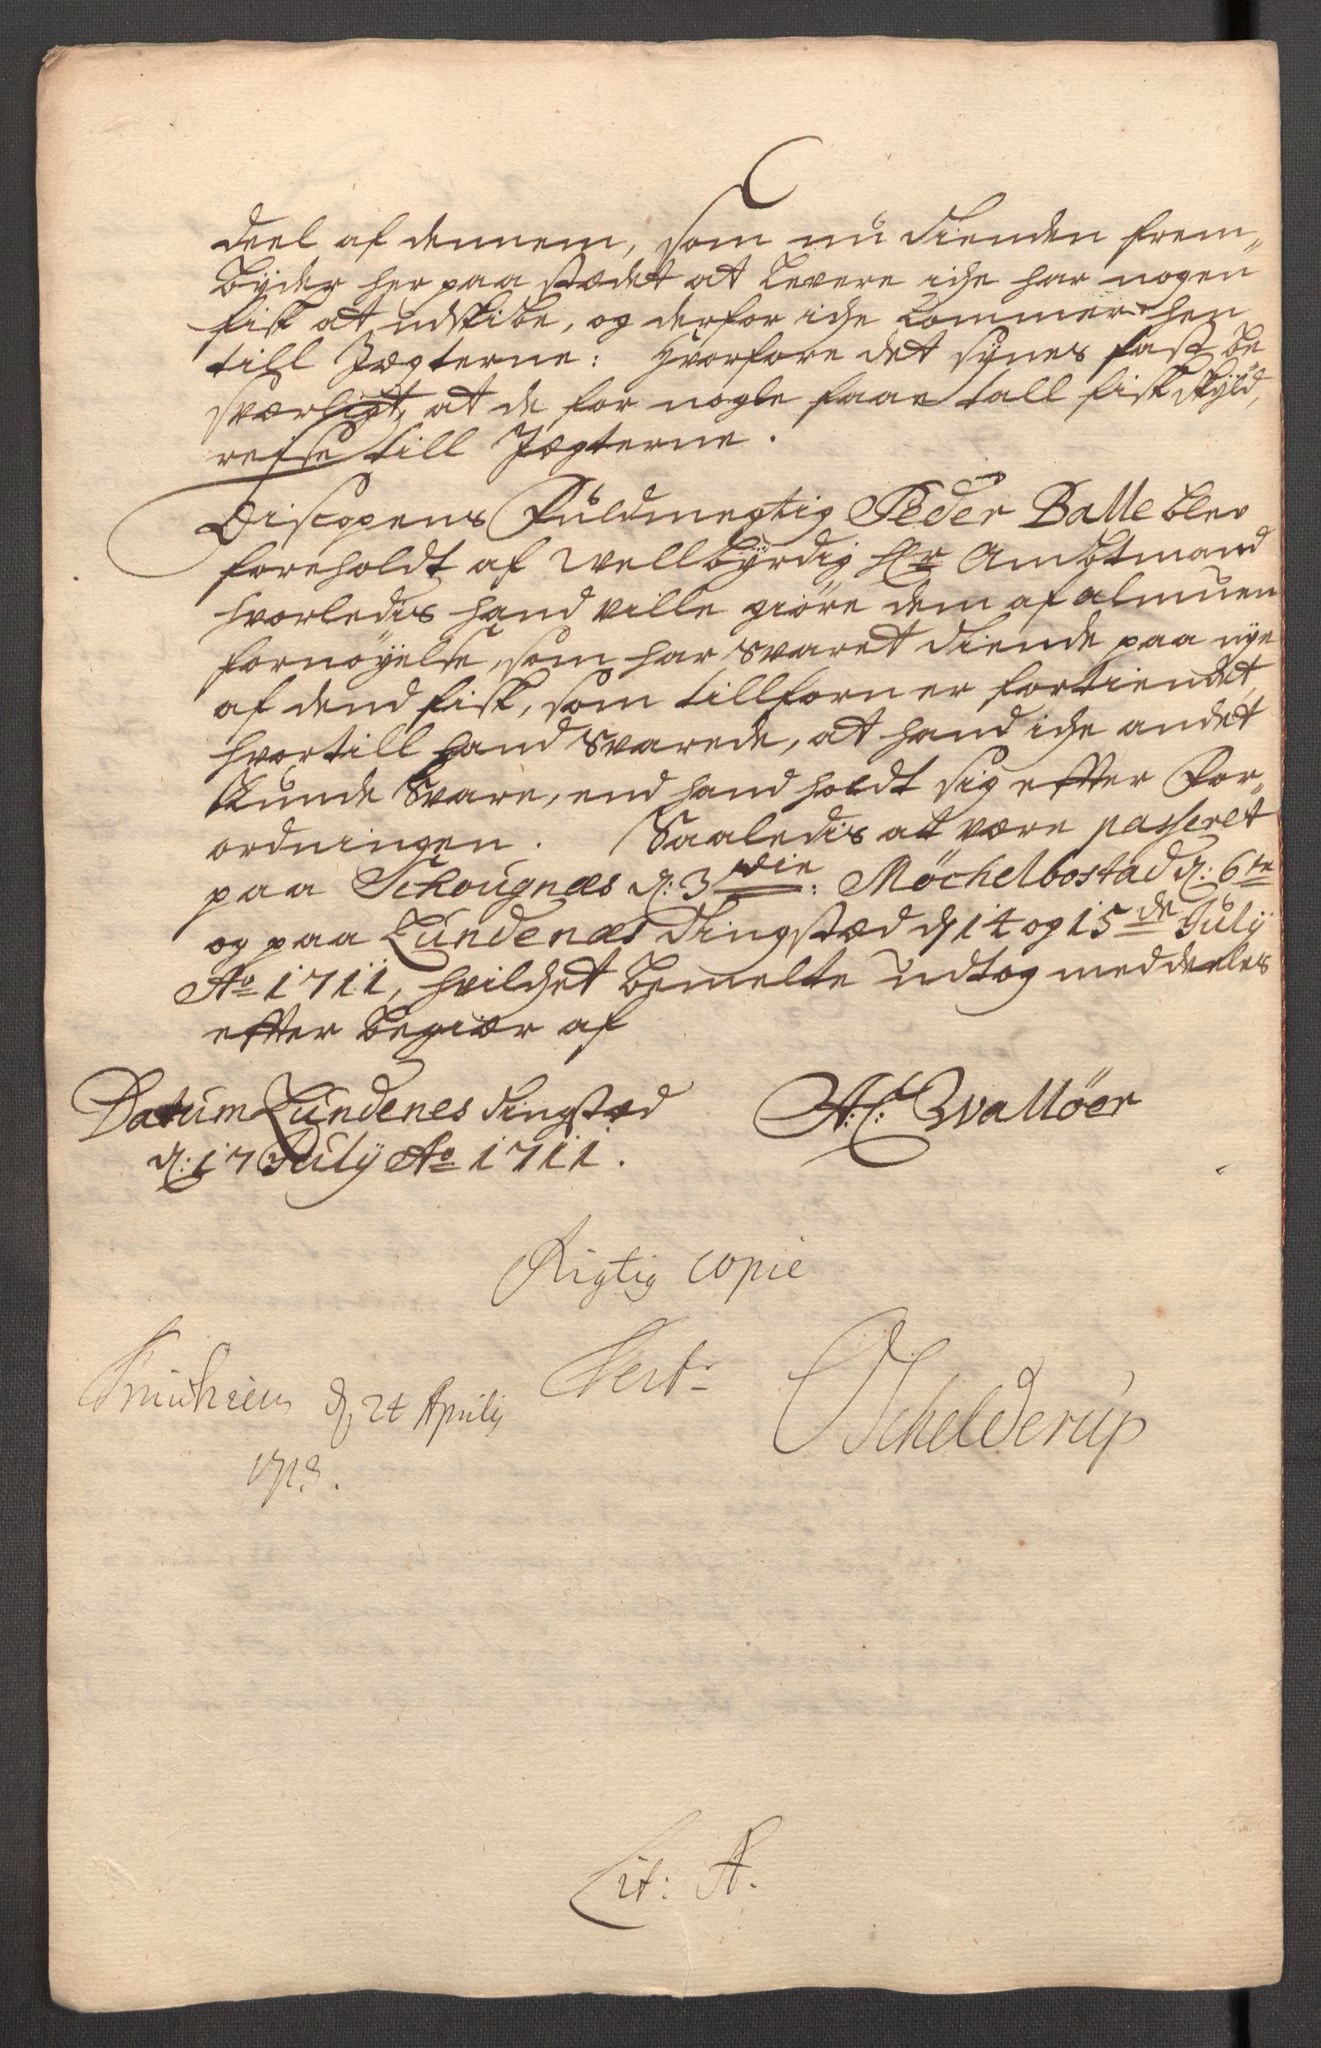 deel af dennem, som nu Tienden frem„
byder her paa stædet at levere iche har nogen
fisk at udskibe, og derfor iche kommer hen
till Jægterne: Hvorfore det synes fast be
sværligt, at de for nogle faae tall fisk skyld,
reise till Jægterne.
Biscopens Fuldmegtig Peder Balle blev
foreholdt af Wellbyrdig Hr Ambtmand
hvorledis hand ville giöre dem af almuen
fornöyelse, som har svaret Tiende paa nye
af dend fisk, som tillforn er fortiendet,
hvortill hand svarede, at hand iche andet
kunde svare, end hand holdt sig efter For„
ordningen. Saaledis at være passeret
paa Schougnæs d: 3die: Möchelbostad d: 6te
og paa Lundenæs Tingstæd d 14 og 15de July
Ao 1711, hvilchet bemelte udtog meddeeles
efter begiær af
Datum Lundenes Tingstæd
d: 17 July Ao 1711.
A: C: Wallöer
Rigtig copie
Test:
Trundhiem d 24 Aprily
1713.
Schelderup
Lit: A.